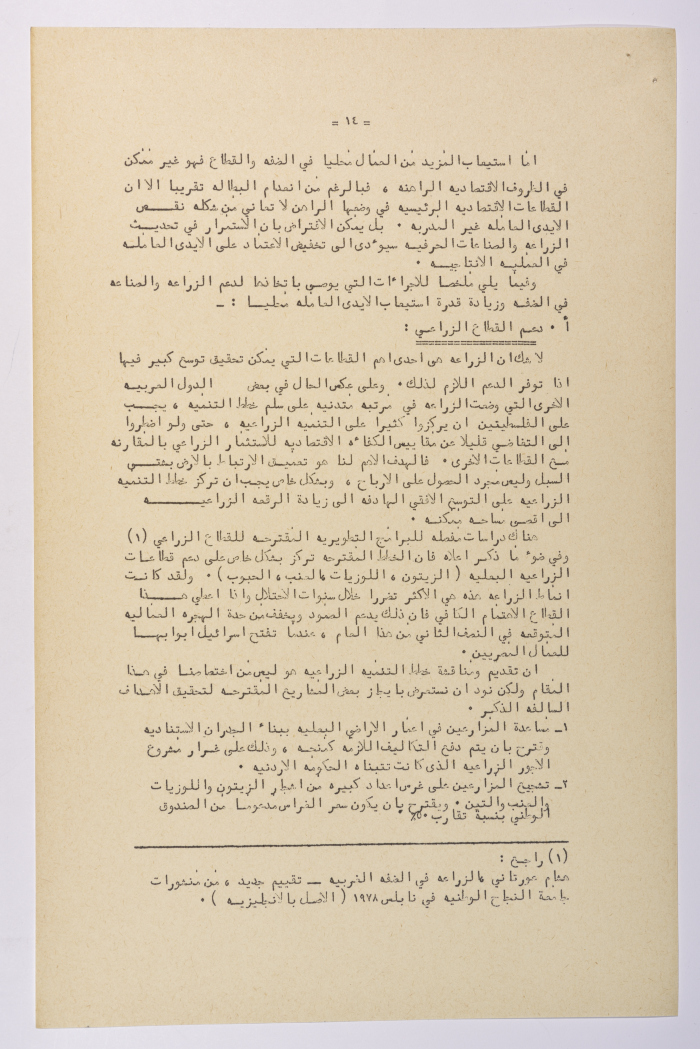 = ١٤ =
امّا استيعاب المزيد من العمال محليا في الضفه والقطاع فهو غير ممكن
في الظروف الاقتصاديه الراهنه ، فبالرغم من انعدام البطاله تقريبا الا ان
القطاعات الاقتصاديه الرئيسيه في وضعها الراهن لا تعاني من مشكله نقــص
الايدى العامله غير المدربه ٠ بل يمكن الافتراض بان الاستمرار في تحديــث
الزراعه والصناعات الحرفيه سيوءدى الى تخفيض الاعتماد على الايدى العاملــه
في العمليه الانتاجيــه ٠
وفيما يلي ملخصا للاجراءات التي يوصى باتخاذها لدعم الزراعه والصناعه
في الضفه وزيادة قدرة استيعاب الايدى العامله محليــا : ــ
أ ٠ دعــم القطاع الزراعــي :
لا شك ان الزراعه هي احدى اهم القطاعات التي يمكن تحقيق توسع كبير فيها
اذا توفر الدعم اللازم لذلك ٠ وعلى عكس الحال في بعض الدول العربيــه
الاخرى التي وضعت الزراعه في مرتبه متدنيه على سلم خطط التنميه ، يجــب
على الفلسطينين ان يركزوا كثيرا على التنميه الزراعيه ، حتى ولو اضطروا
الى التغاضي قليلا عن مقاييس الكفاءه الاقتصاديه للاستثمار الزراعي بالمقارنه
مــع القطاعات الاخرى ٠ فالهدف الاهم لنا هو تعميــق الارتباط بالارض بشتــى
السبل وليس مجرد الحصول على الارباح ، وبشكل خاص يجب ان تركز خطط التنميه
الزراعيه على التوسع الافقي الهادفه الى زيادة الرقعه الزراعيــــــه
الى اقصى مساحه ممكنــه ٠
هناك دراسات مفصله للبرامج التطويريه المقترحــه للقطاع الزراعي (١)
وفي ضوء ما ذكــر اعلاه فان الخطط المقترحه تركز بشكل خاص على دعم قطاعــات
الزراعيه البعليه ( الزيتون ، اللوزيات ، العنب ، الحبوب ) ٠ ولقد كانــت
انماط الزراعه هذه هي الاكثر تضررا خلال سنوات الاحتلال واذا اعطي هــــذا
القطاع الاهتمام الكافي فان ذلك يدعم الصمود ويخفف من حدة الهجره العماليه
المتوقعه في النصف الثاني من هذا العام ، عندما تفتح اسرائيل ابوابهــا
للعمال المصريين ٠
ان تقديم ومناقشة خطط التنميه الزراعيه هو ليس من اختصاصنــا في هــذا
المقام ولكن نود ان نستعرض بايجاز بعض المشاريع المقترحــه لتحقيق الاهــداف
السالفه الذكــر ٠
١ــ مساعدة المزارعين في اعمار الاراضي البعليه ببناء الجدران الاستناديه
ونقترح بان يتم دفع التكاليف اللازمه كمنحــه ، وذلك على غــرار مشروع
الاجور الزراعيه الذى كانت تتبناه الحكومه الاردنيه ٠
٢ــ تشجيع المزارعين على غرس اعداد كبيره من اشجار الزيتون واللوزيات
والعنب والتين ٠ ويقترح بان يكون سعر الغراس مدعومــا من الصندوق
الوطني بنسبة تقارب ٥٠٪ ٠
(١) راجــع :
هشام عورتاني ، الزراعه في الضفه الغربيه ــ تقييم جديد ، من منشورات
جامعة النجاح الوطنيه في نابلس ١٩٧٨ ( الاصل بالانجليزيــه ) ٠